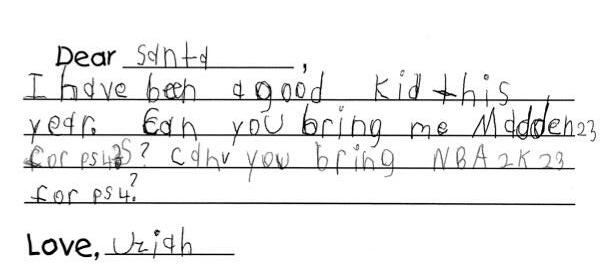 Dear Santa,
I have been a good kid this
year. Can you bring me Madden23
for ps4? can you bring NBA 2K23
for ps4?
Love, Uziah